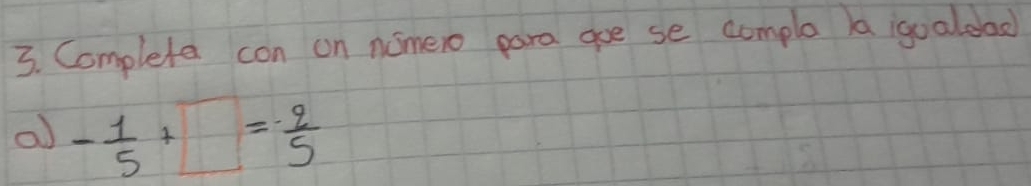 3. Completa con un número para que se cumpla la igualdad
a) -1/5 + □ = -2/5